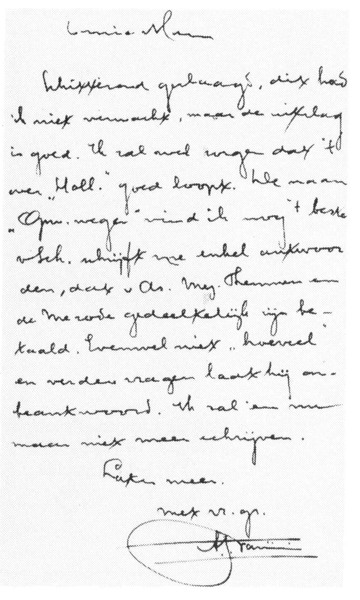 Schitterend geslaagd, dit had
ik niet verwacht, maar de uitslag
is goed. Ik zal wel zorgen dat 't
over „Holl." goed loopt. De naam
„Opw. wegen" vind ik nog 't beste
v Sch. schrijft me enkel antwoor
den, dat v Os. Mej. Theunen en
de Merode gedeeltelijk zijn be-
taald. Evenwel niet „hoeveel"
en verdere vragen laat hij on-
beantwoord. Ik zal 'em nu
maar niet meer schrijven.
Later meer.
met vr. gr.